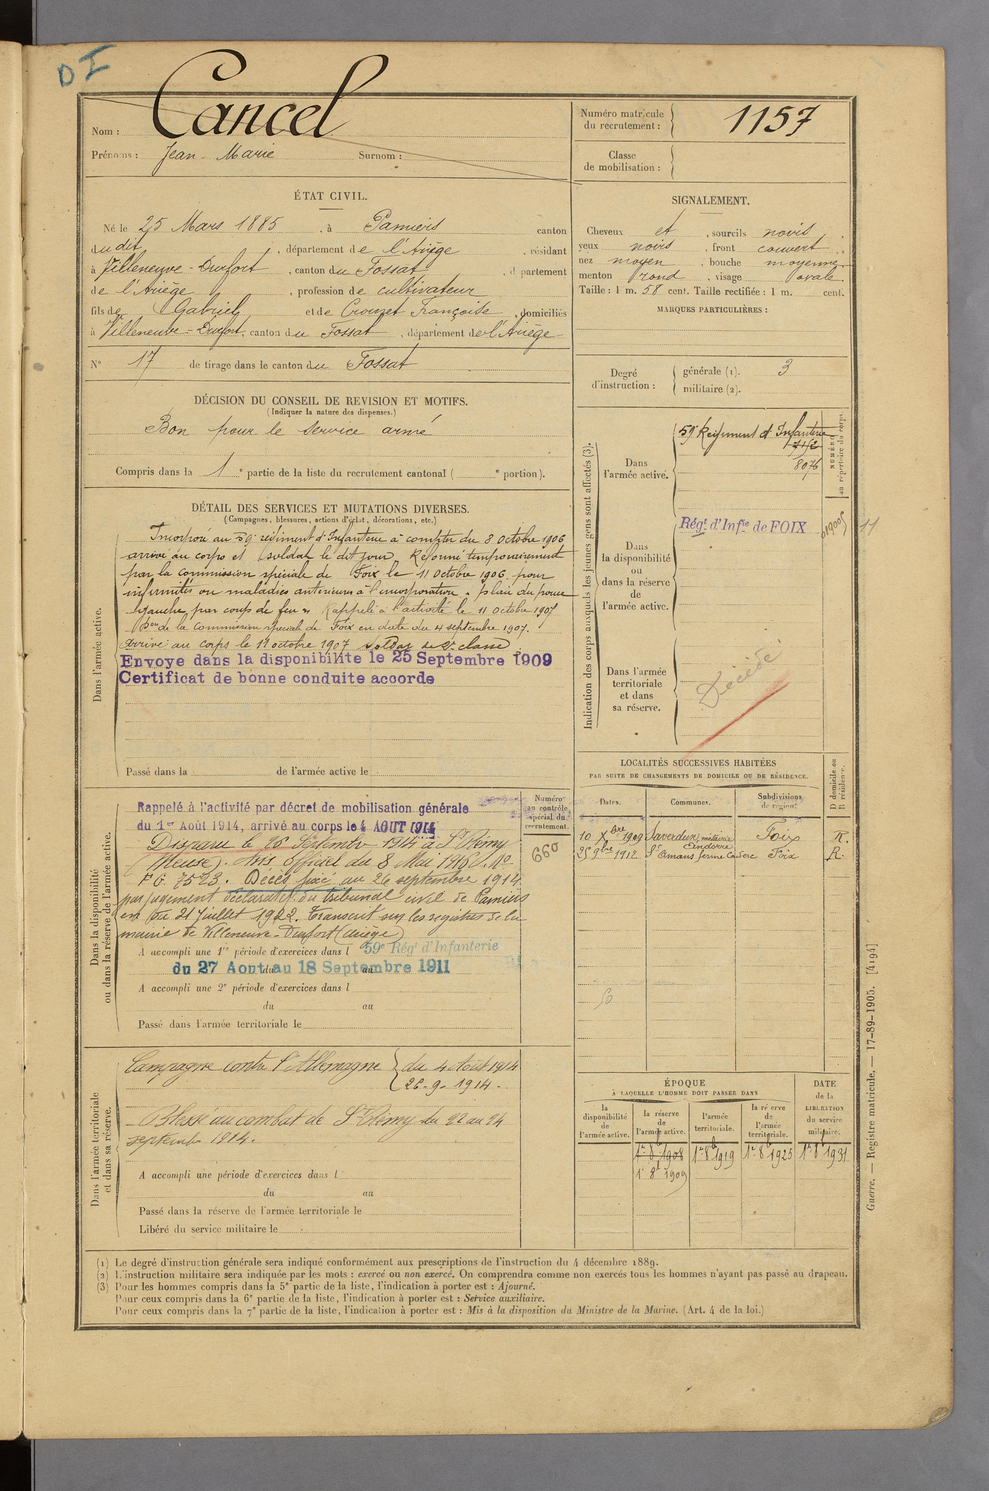 D I
Nom : Cancel
Prénoms : Jean-Marie Surnom :
Numéro matricule du recrutement : 1157
Classe de mobilisation :
ÉTAT CIVIL.
Né le 25 Mars 1885, à Pamiers canton
du dit, département de l'Ariège, résidant
à Villeneuve-Durfort, canton du Fossat, département
de l'Ariège, profession de cultivateur
fils de Gabriel et de Crouzet Françoise, domiciliés
à Villeneuve-Durfort, canton du Fossat, département de l'Ariège
N° 17 de tirage dans le canton du Fossat
SIGNALEMENT.
Cheveux et, sourcils noirs
yeux noirs, front couvert
nez moyen, bouche moyenne
menton rond, visage ovale
Taille : 1 m. 58 cent. Taille rectifiée : 1 m. cent.
MARQUES PARTICULIÈRES :
Degré d'instruction : générale (1). 3
militaire (2).
DÉCISION DU CONSEIL DE REVISION ET MOTIFS.
(Indiquer la nature des dispenses.)
Bon pour le service armé
Compris dans la 1 e partie de la liste du recrutement cantonal ( e portion).
DÉTAIL DES SERVICES ET MUTATIONS DIVERSES.
(Campagnes, blessures, actions d'éclat, décorations, etc.)
Dans l'armée active.
Incorporé au 59e régiment d'Infanterie à compter du 8 octobre 1906
arrivé au corps et soldat le dit jour. Réformé temporairement
par la commission spéciale de Foix le 11 octobre 1906 pour
infirmités ou maladies antérieures à l'incorporation « plaie du pouce
gauche par coup de feu » Rappelé à l'activité le 11 octobre 1907
Don de la Commission spéciale de Foix en date du 4 septembre 1907.
Arrivé au corps le 11 octobre 1907 soldat de 2e classe
Envoye dans la disponibilite le 25 Septembre 1909
Certificat de bonne conduite accorde
Passé dans la de l'armée active le
Indication des corps auxquels les jeunes gens sont affectés (3).
Dans l'armée active.
59e Régiment d'Infanterie
8076
NUMÉRO au répertoire du corps.
Dans la disponibilité ou dans la réserve de l'armée active.
Régt d'Infie de FOIX
11
Dans l'armée territoriale et dans sa réserve.
Décédé
Dans la disponibilité ou dans la réserve de l'armée active.
Numéro au contrôle spécial du recrutement.
660
Rappelé à l'activité par décret de mobilisation générale
du 1er Août 1914, arrivé au corps le 4 AOUT 1914
Disparu le 26 Septembre 1914 à St Rémy
(Meuse). Avis officiel du 8 Mai 1916 No
FG 7523. Décès fixé au 26 septembre 1914
par jugement déclaratif du tribunal civil de Pamiers
en du 21 Juillet 1922. Transcrit sur les registres de la
mairie de Villeneuve-Durfort (Ariège)
A accompli une 1re période d'exercices dans l 59e Régt d'Infanterie
du 27 Aout au 18 Septembre 1911
A accompli une 2e période d'exercices dans l
du au
Passé dans l'armée territoriale le
LOCALITÉS SUCCESSIVES HABITÉES
PAR SUITE DE CHANGEMENTS DE DOMICILE OU DE RÉSIDENCE.
Dates. Communes. Subdivisions de région. D domicile ou R résidence.
10 Xbre 1909 Saverdun, métairie Foix R.
25 9bre 1912 St Amans, ferme Foix R.
Dans l'armée territoriale et dans sa réserve.
Campagne contre l'Allemagne { du 4 Août 1914
26-9-1914.
Blessé au combat de St Rémy du 22 au 24
septembre 1914.
A accompli une période d'exercices dans l
du au
Passé dans la réserve de l'armée territoriale le
Libéré du service militaire le
ÉPOQUE
À LAQUELLE L'HOMME DOIT PASSER DANS
la disponibilité de l'armée active. la réserve de l'armée active. l'armée territoriale. la réserve de l'armée territoriale. DATE de la LIBÉRATION du service militaire.
1r 8b 1908 1r 8b 1919 1r 8b 1925 1r 8b 1931
1r 8b 1909
Guerre. — Registre matricule. — 17-89-1905. [4194]
(1) Le degré d'instruction générale sera indiqué conformément aux prescriptions de l'instruction du 4 décembre 1889.
(2) L'instruction militaire sera indiquée par les mots : exercé ou non exercé. On comprendra comme non exercés tous les hommes n'ayant pas passé au drapeau.
(3) Pour les hommes compris dans la 5e partie de la liste, l'indication à porter est : Ajourné.
Pour ceux compris dans la 6e partie de la liste, l'indication à porter est : Service auxiliaire.
Pour ceux compris dans la 7e partie de la liste, l'indication à porter est : Mis à la disposition du Ministre de la Marine. (Art. 4 de la loi.)